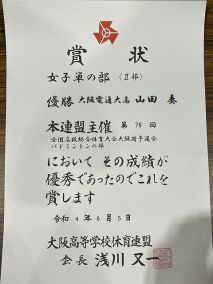 賞状
女子単の部（Ⅱ部）
優勝 大阪電通大高 山田 奏
本連盟主催 第76回
全国高校総合体育大会大阪府予選会
バドミントンの部
において その成績が
優秀であったのでこれを
賞します
令和4年6月5日
大阪高等学校体育連盟
会長 浅川 又一